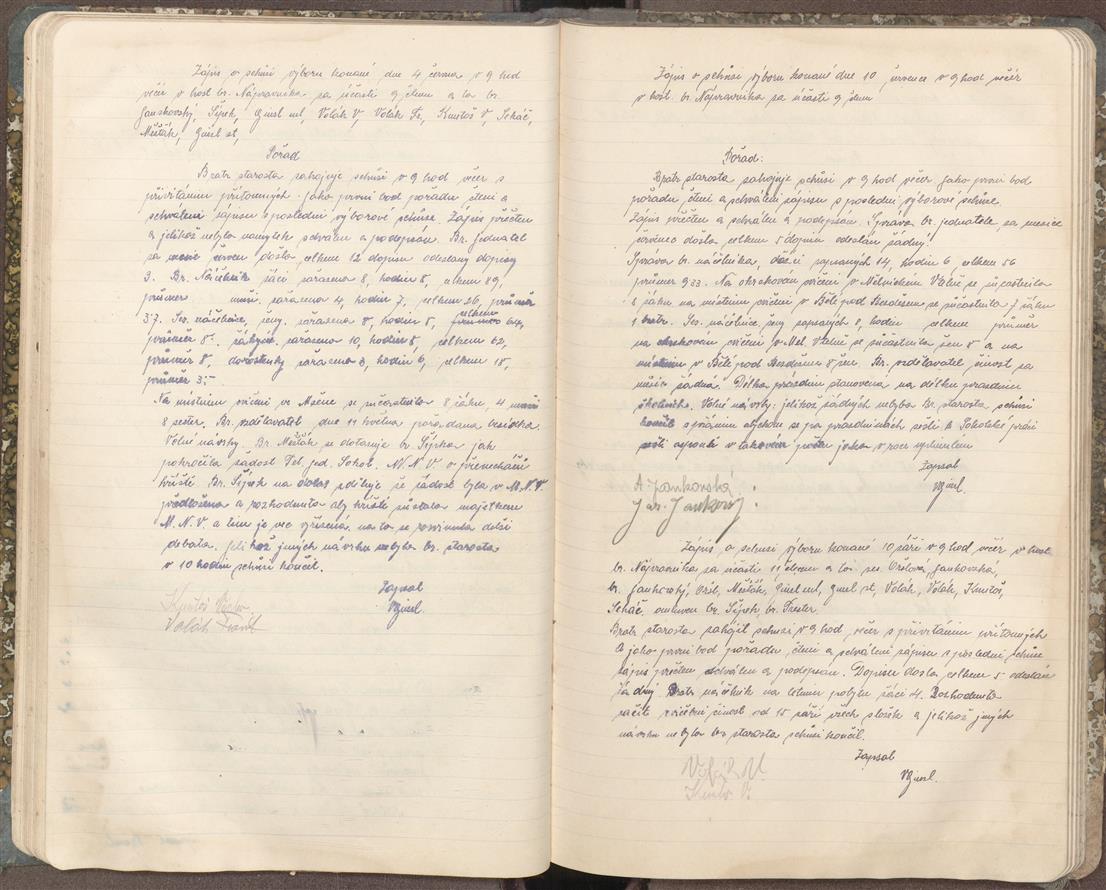 Zápis o schůsi výboru konané dne 4 června v 9 hod
večer v host br. Nápravníka sa účasti 9 členu a to br.
Jankovský, Šípek, Ginsl ml, Volák V, Volák Fr, Kmitoš V, Seháč,
Měšťák, Ginsl st,
Pořad
Bratr starosta sahajuje schůsi v 9 hod večer s
přivítáním přítomných. Jako první bod pořadu čtení a
schválení sápisu s poslední výborové schůse. Zápis přečten
a jelikož nebylo namytek schválen a podepsán. Br. jednatel
sa měsíc červen došlo celkem 12 dopisu odeslány dopisy
3. Br. Náčelník šáci sařaseno 8, hodin 8, celkem 89,
průmer muši. sařaseno 4, hodin 7, celkem 26, průměr
3.7. Ses. náčelnice, ženy. sařaseno 8, hodin 8, celkem 64,
průměr 8. šákyně sařaseno 10, hodin 8, celkem 62,
průměr 8, dorostenky sařaseno 3, hodin 6, celkem 18,
průměr 3.-
Na místním cvičení ve Mšene se súčastnilo 8 šáku, 4 muši
8 sester. Br. vzdělavatel dne 11 května pořádana besídka.
Volné návrhy. Br. Měšťák se dotasuje br. Šípka jak
pokročila šádost Tel. jed. Sokol. M.N.V. o přenechání
hřiště. Br. Šípek na dotas sděluje še šádost byla v M.N.V.
předložena a rozhodnuto aby hřiště süstalo majetkem
M.N.V. a tím je vec vyřísená, na to se rosvinula delší
debata. Jelikož jiných návrhu nebylo br. starosta
v 10 hodin schůsi končil.
Zapsal
VGinsl.
Kmitoš Václav
Volák Frant
Zápis o schůsi výboru konané dne 10 července v 9 hod večer
v host. br. Nápravníka sa účasti 9 členu
Pořad:
Bratr starosta sahajuje schůsi v 9 hod večer Jako první bod
pořadu čtení a schválení sápisu s poslední výborové schůse.
Zápis přečten a schválen a podepsán. Správa br. jednatele sa měsíc
červenec došlo celkem 5 dopisu odeslán šádný.
Správa br. náčelníka, došci sapsaných 14, hodin 6 celkem 56
průmer 9.33. Na okrskovém cvičení v Mělnickém Vtelně se súčastnilo
8 šáku na místním cvičení v Bělé pod Besdězem se súčastnilo 7 šáku
1 bratr. Ses. náčelnice, ženy sapsaných 8, hodin celkem průměr
na okrskovém cvičení v Mel. Vtelně se súčastnilo šen 8 a na
místním v Bělé pod Besdězem 8 šen. Br. vzdělavatel činost sa
měsíc šádná. Délka prásdnin stanovena na délku prasdnin
školních. Volné návrhy: jelikož šádných nebylo br. starosta schůsi
končil s přáním abychom se po prasdninách sešli k Sokolské práci
sešli opravdě v takovém počtu jako v roce uplinulém
Zapsal
VGinsl.
A. Jankovská
Jar. Jankovský
Zápis o schusi výboru konané 10 sáři v 9 hod večer v host
br. Nápravníka sa účasti 11 členu a toi ses. Oršlová, Jankovská,
br. Jankovský, Oršl, Měšťák, Ginsl ml, Ginsl st, Volák, Volák, Kmitoš,
Seháč, omluven br. Šípek, br. Trester.
Bratr starosta sahájil schusi v 9 hod. večer s přivítáním přítomných
a jako první bod pořadu, čtení a schválení sápisu s poslední schůse
sápis přečten schválen a podepsán. Dopisu došlo celkem 5 odeslán
šádný Bratr náčelník na letním pobytu šáci 4. Roshodnuto
sačíti cvičební činost od 15 sáři všech složek a jelikož jiných
návrhu nebylo br. starosta schůsi končil.
Zapsal
VGinsl.
Volák V.
Kmitoš V.